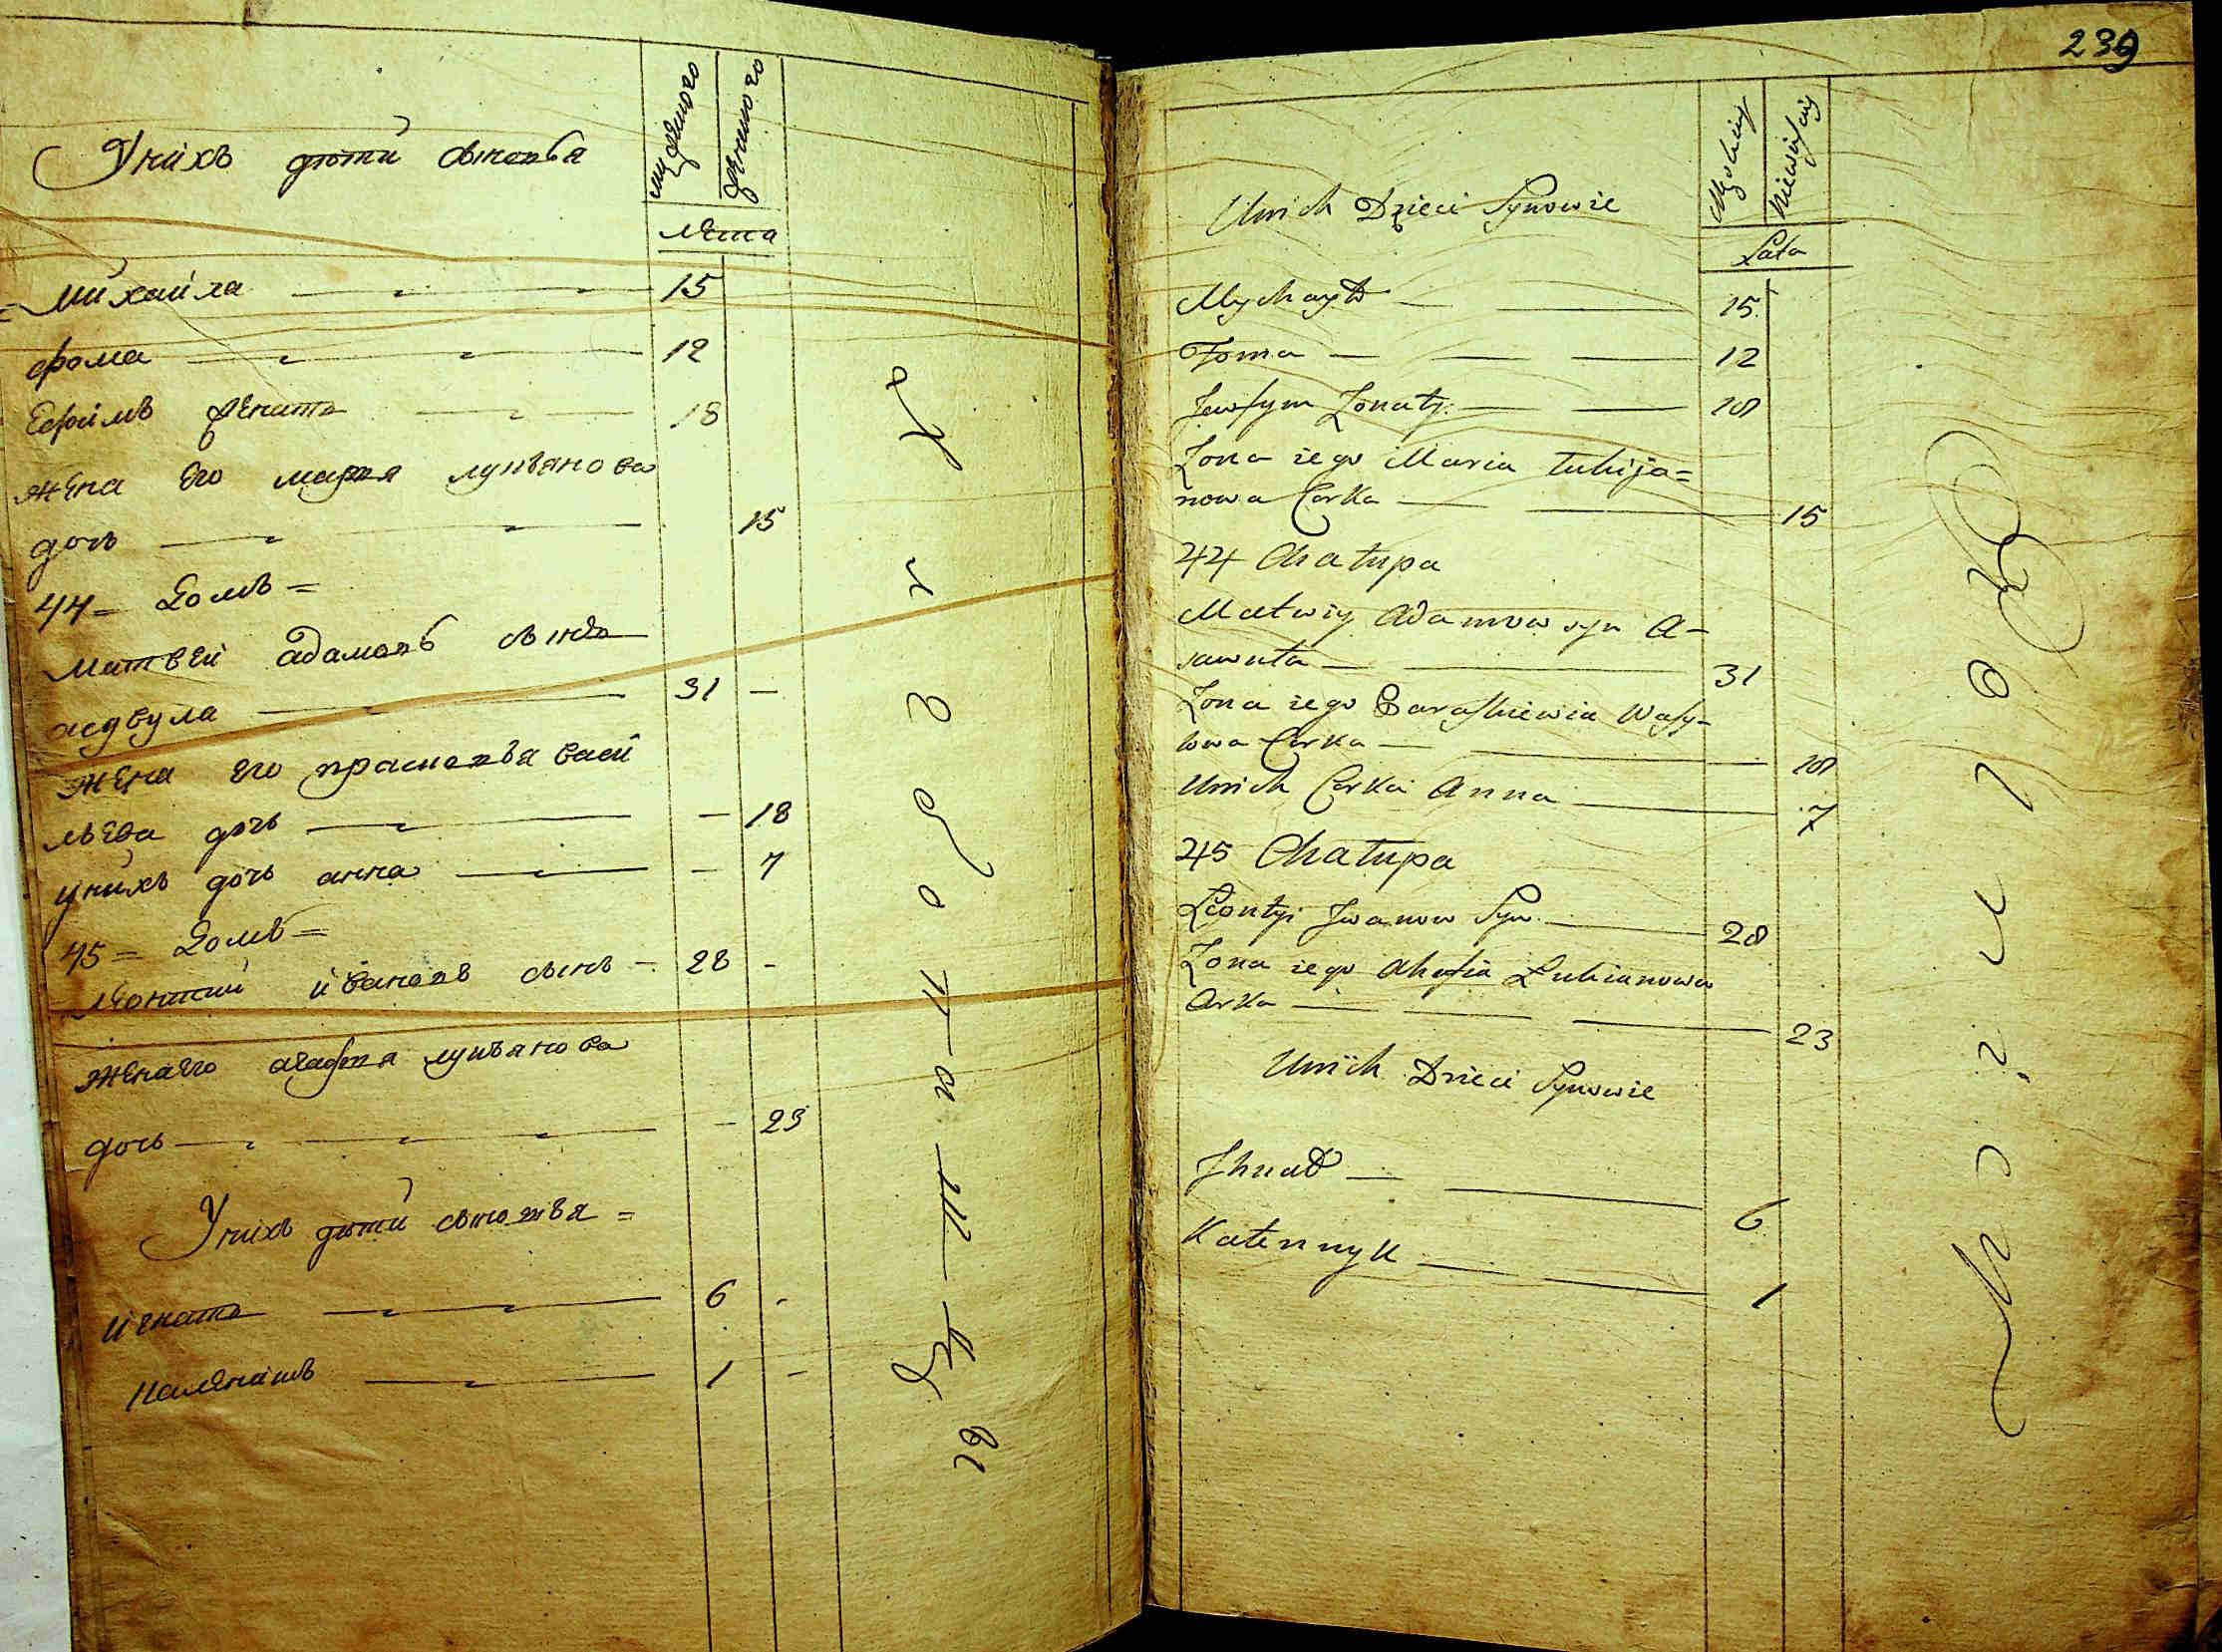 Унихъ дѣти сыновья
мужеского
женского
лета
Михаила 15
Фома 12
Ефимъ женатъ 18
жена его марья лукьянова
дочь 15
44 = Домъ =
Матвей адамовъ сынъ
31 —
жена его прасковья васи
льева дочь — 18
унихъ дочь анна — 7
45 = Домъ =
Леонтий ивановъ сынъ — 28 -
жена его агафья лукьянова
дочь - 23
Унихъ дѣти сыновья =
игнатъ 6 -
1 -
239
Unich Dzieci Synowie
Męskiey
Niewieściey
Lata
Mychayło 15
Foma 12
Jewfym Żonaty 18
Żona iego Maria Łukija=
nowa Corka 15
44 Chałupa
Matwiy Adamow syn A-
sawuła 31
Żona iego Paraskiewia Wasy-
lowa Corka 18
Unich Corka Anna 7
45 Chałupa
Leontyi Jwanow Syn 28
Żona iego Ahafia Łukianowa
Corka 23
Unich Dzieci Synowie
Jhnat 6
1